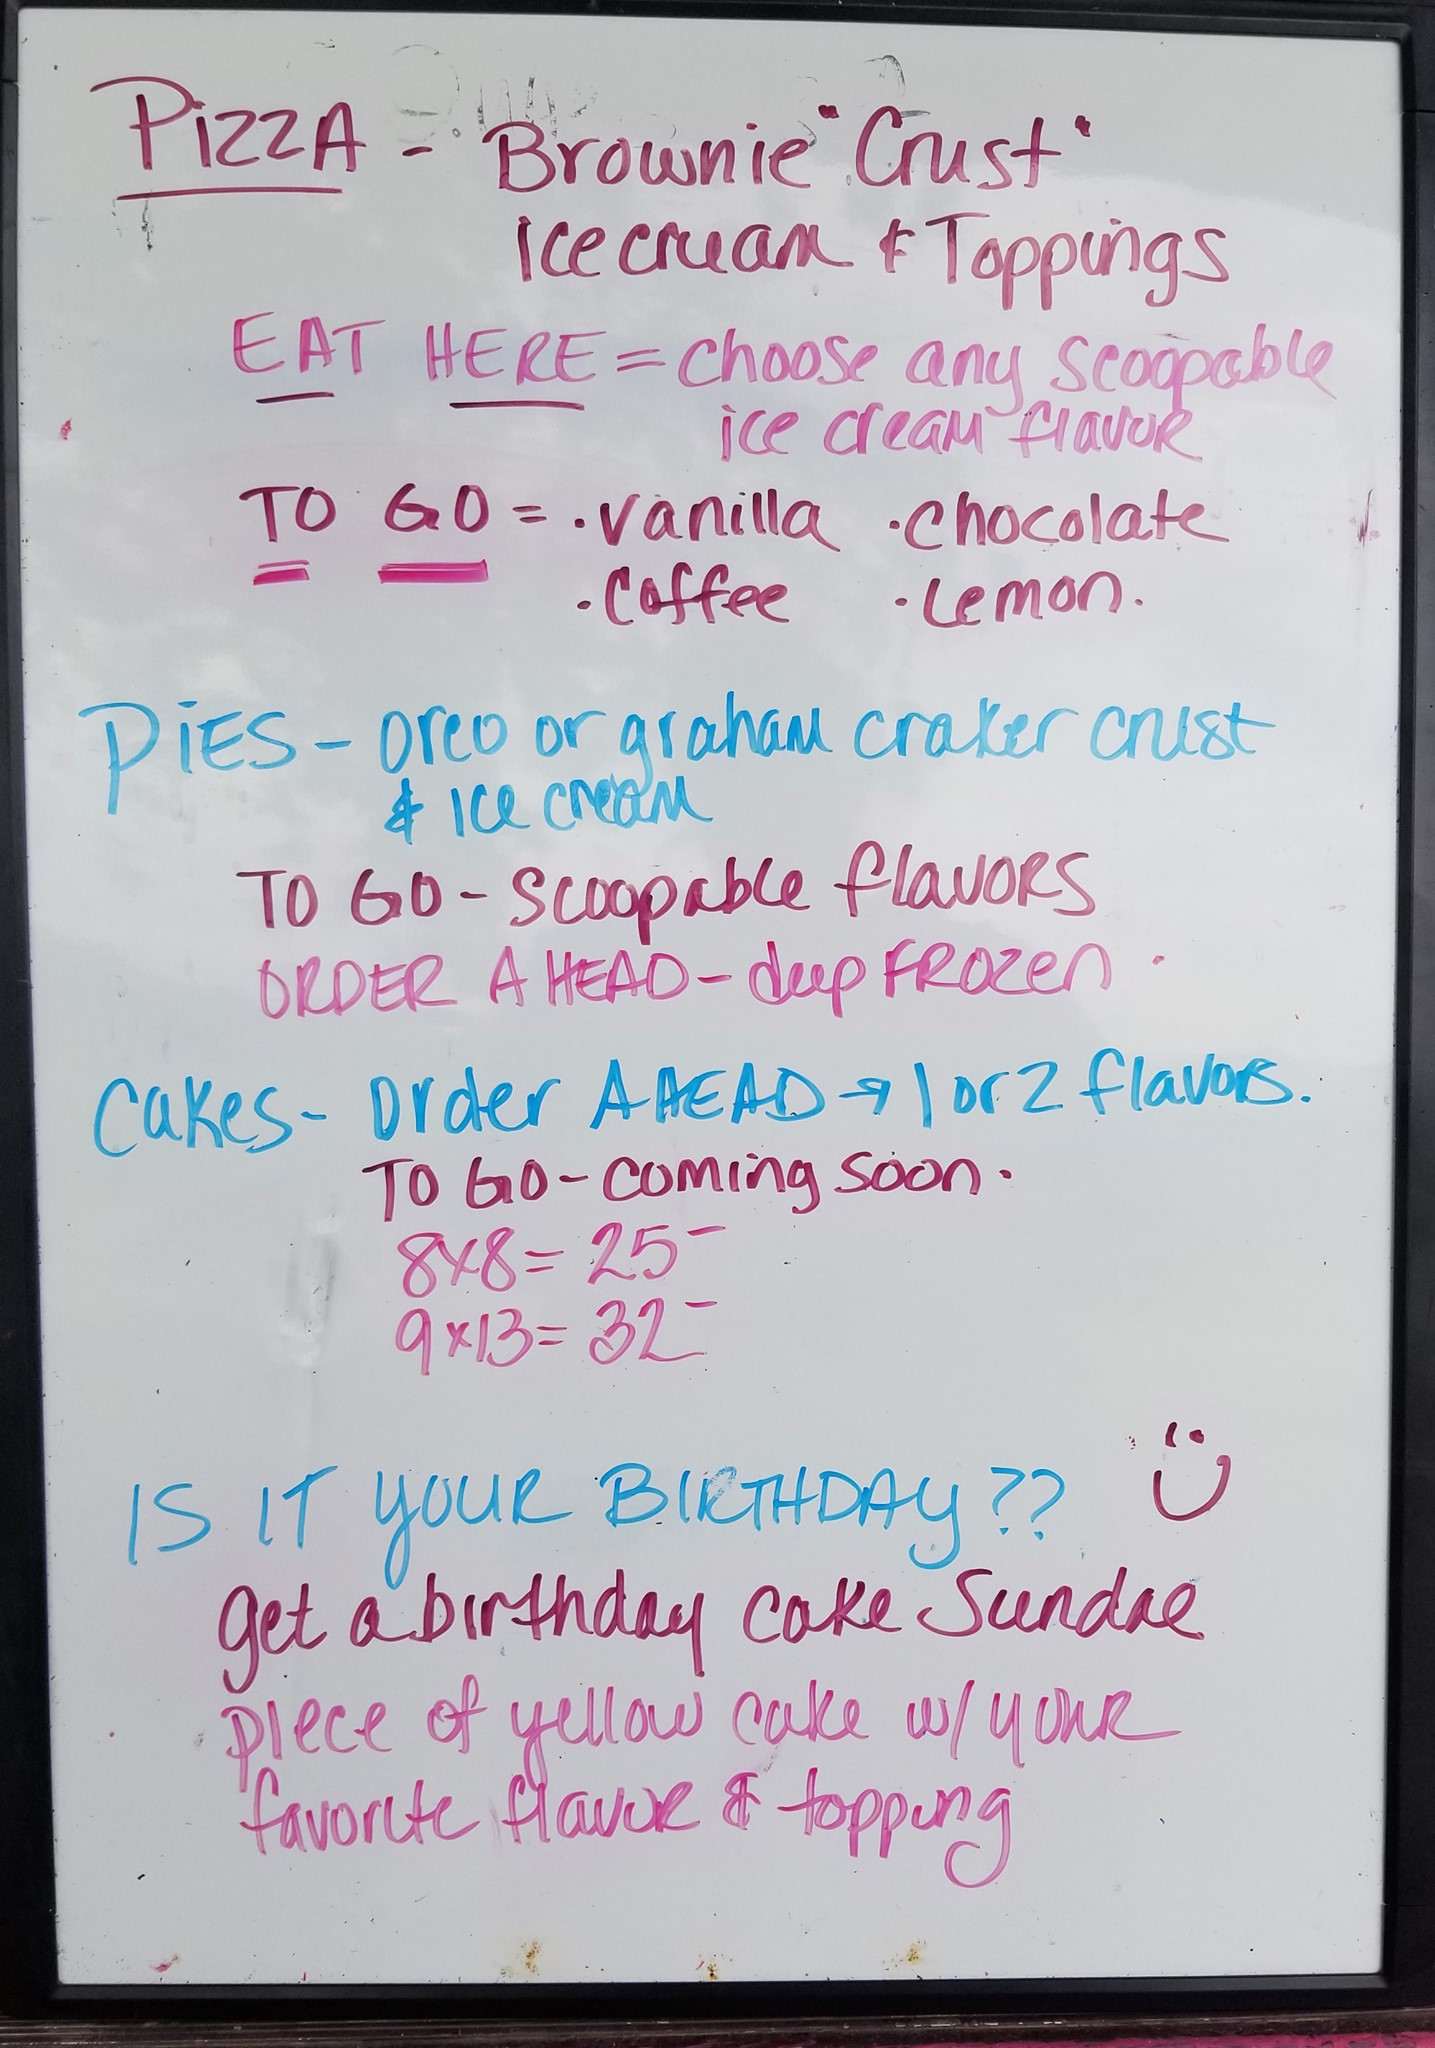 PizzA - Brownie "Crust"
Ice cream & Toppings
EAT HERE = choose any scoopable
ice cream flavor
TO GO = • vanilla • chocolate
• Coffee • Lemon.
PiES - Oreo or graham craker crust
& Ice cream
TO GO - Scoopable flavors
ORDER AHEAD - deep FROZen.
Cakes - Order AHEAD → 1 or 2 flavors.
TO GO - coming soon.
8x8 = 25-
9x13 = 32-
IS IT YOUR BIRTHDAY??
get a birthday cake Sundae
piece of yellow cake w/ your
favorite flavor & topping